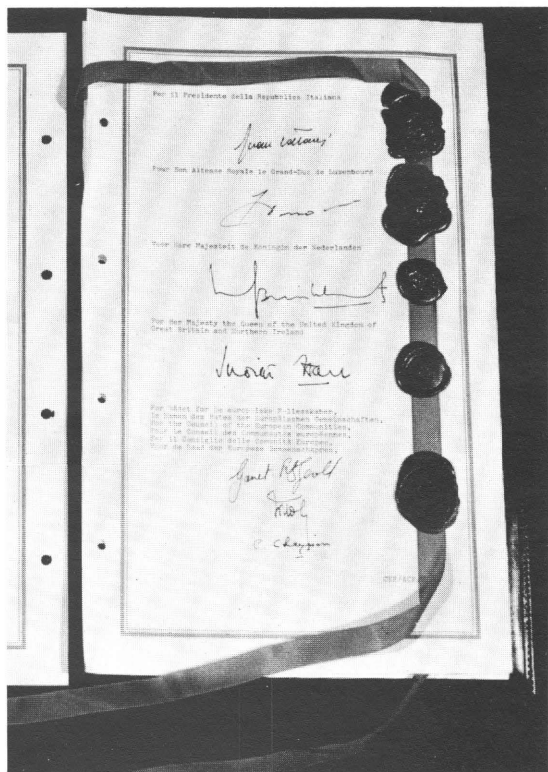 Per il Presidente della Repubblica Italiana
Pour Son Altesse Royale le Grand-Duc de Luxembourg
Voor Hare Majesteit de Koningin der Nederlanden
For Her Majesty the Queen of the United Kingdom of
Great Britain and Northern Ireland
Judith Hart
For Rådet for De europæiske Fællesskaber,
Im Namen des Rates der Europäischen Gemeinschaften,
For the Council of the European Communities,
Pour le Conseil des Communautés européennes,
Per il Consiglio delle Comunità Europee,
Voor de Raad der Europese Gemeenschappen,
Garret FitzGerald
C. Cheysson